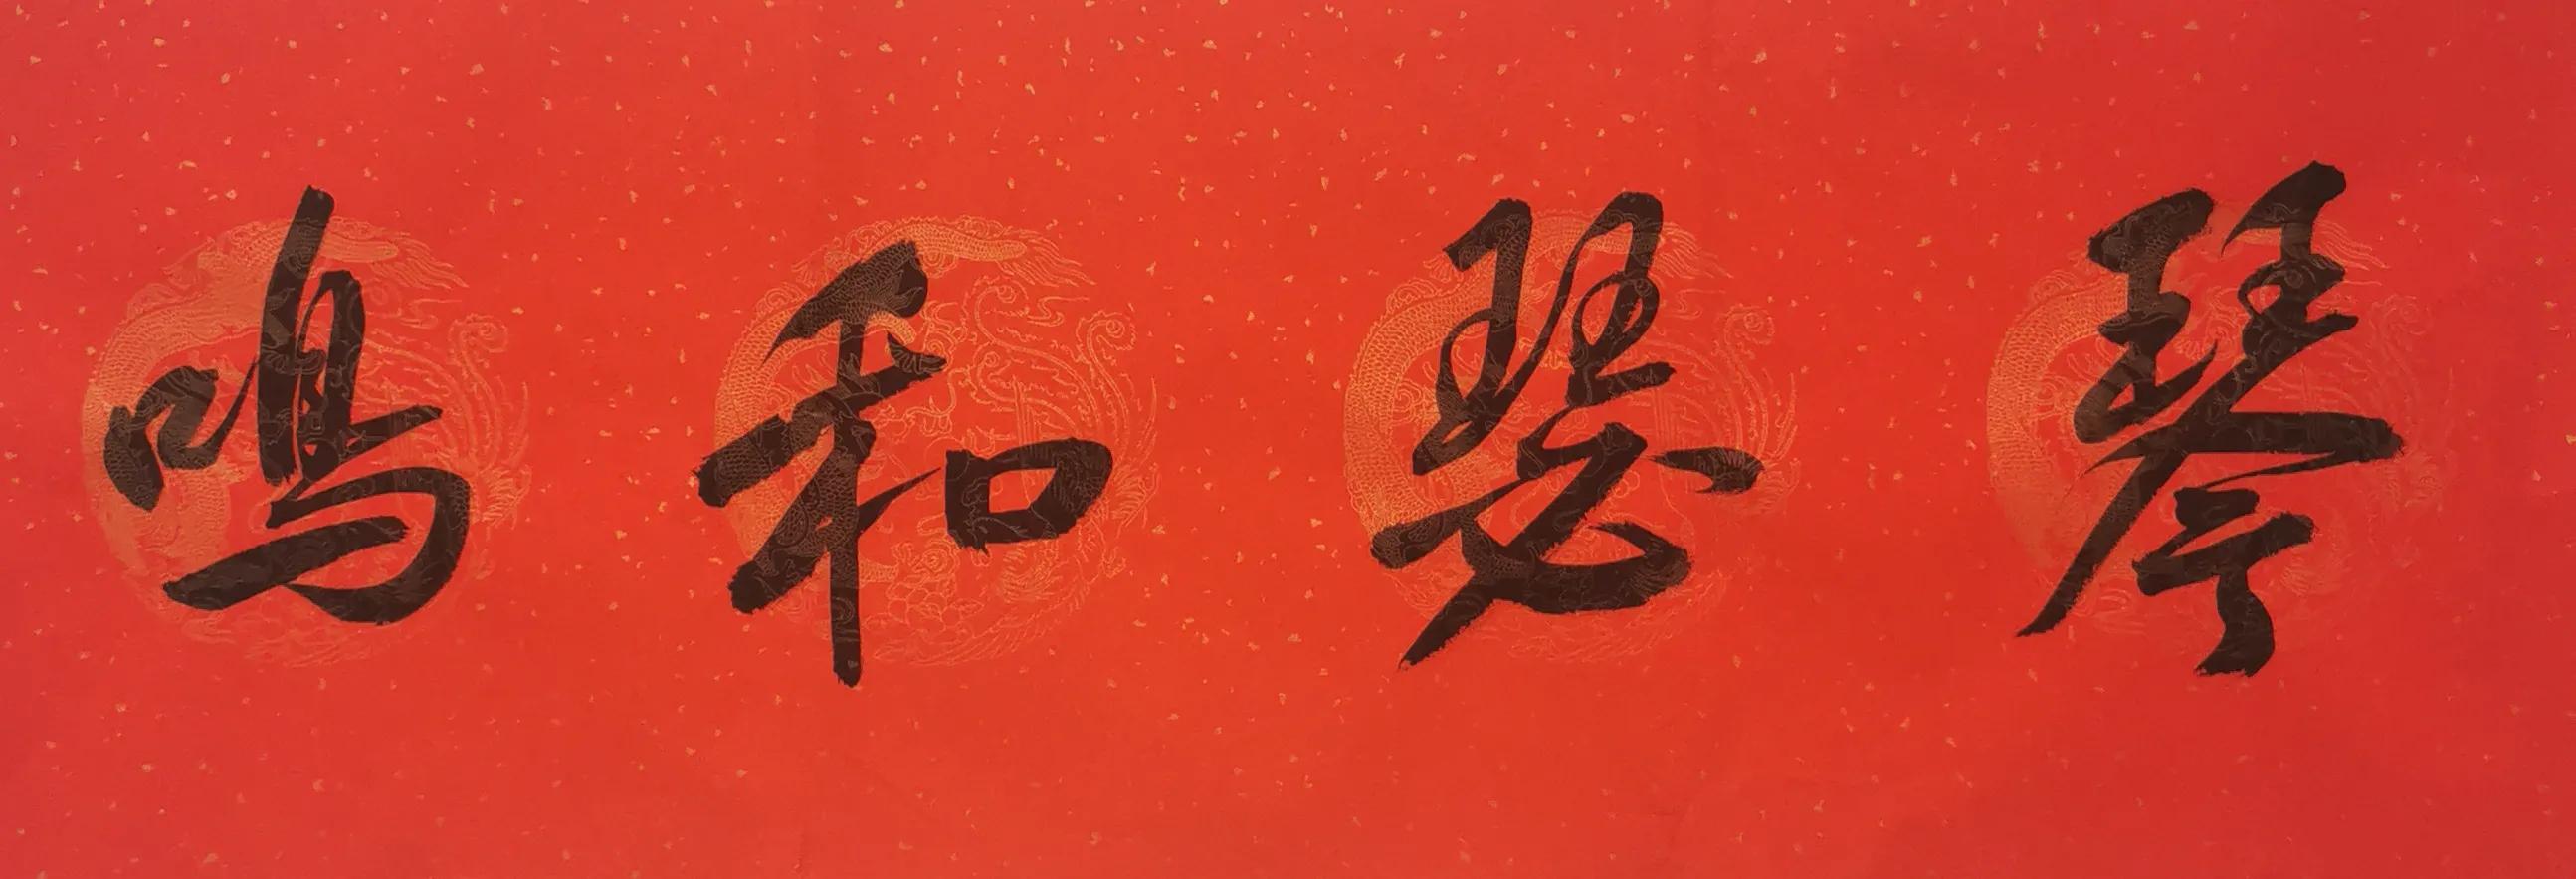 琴瑟和鸣